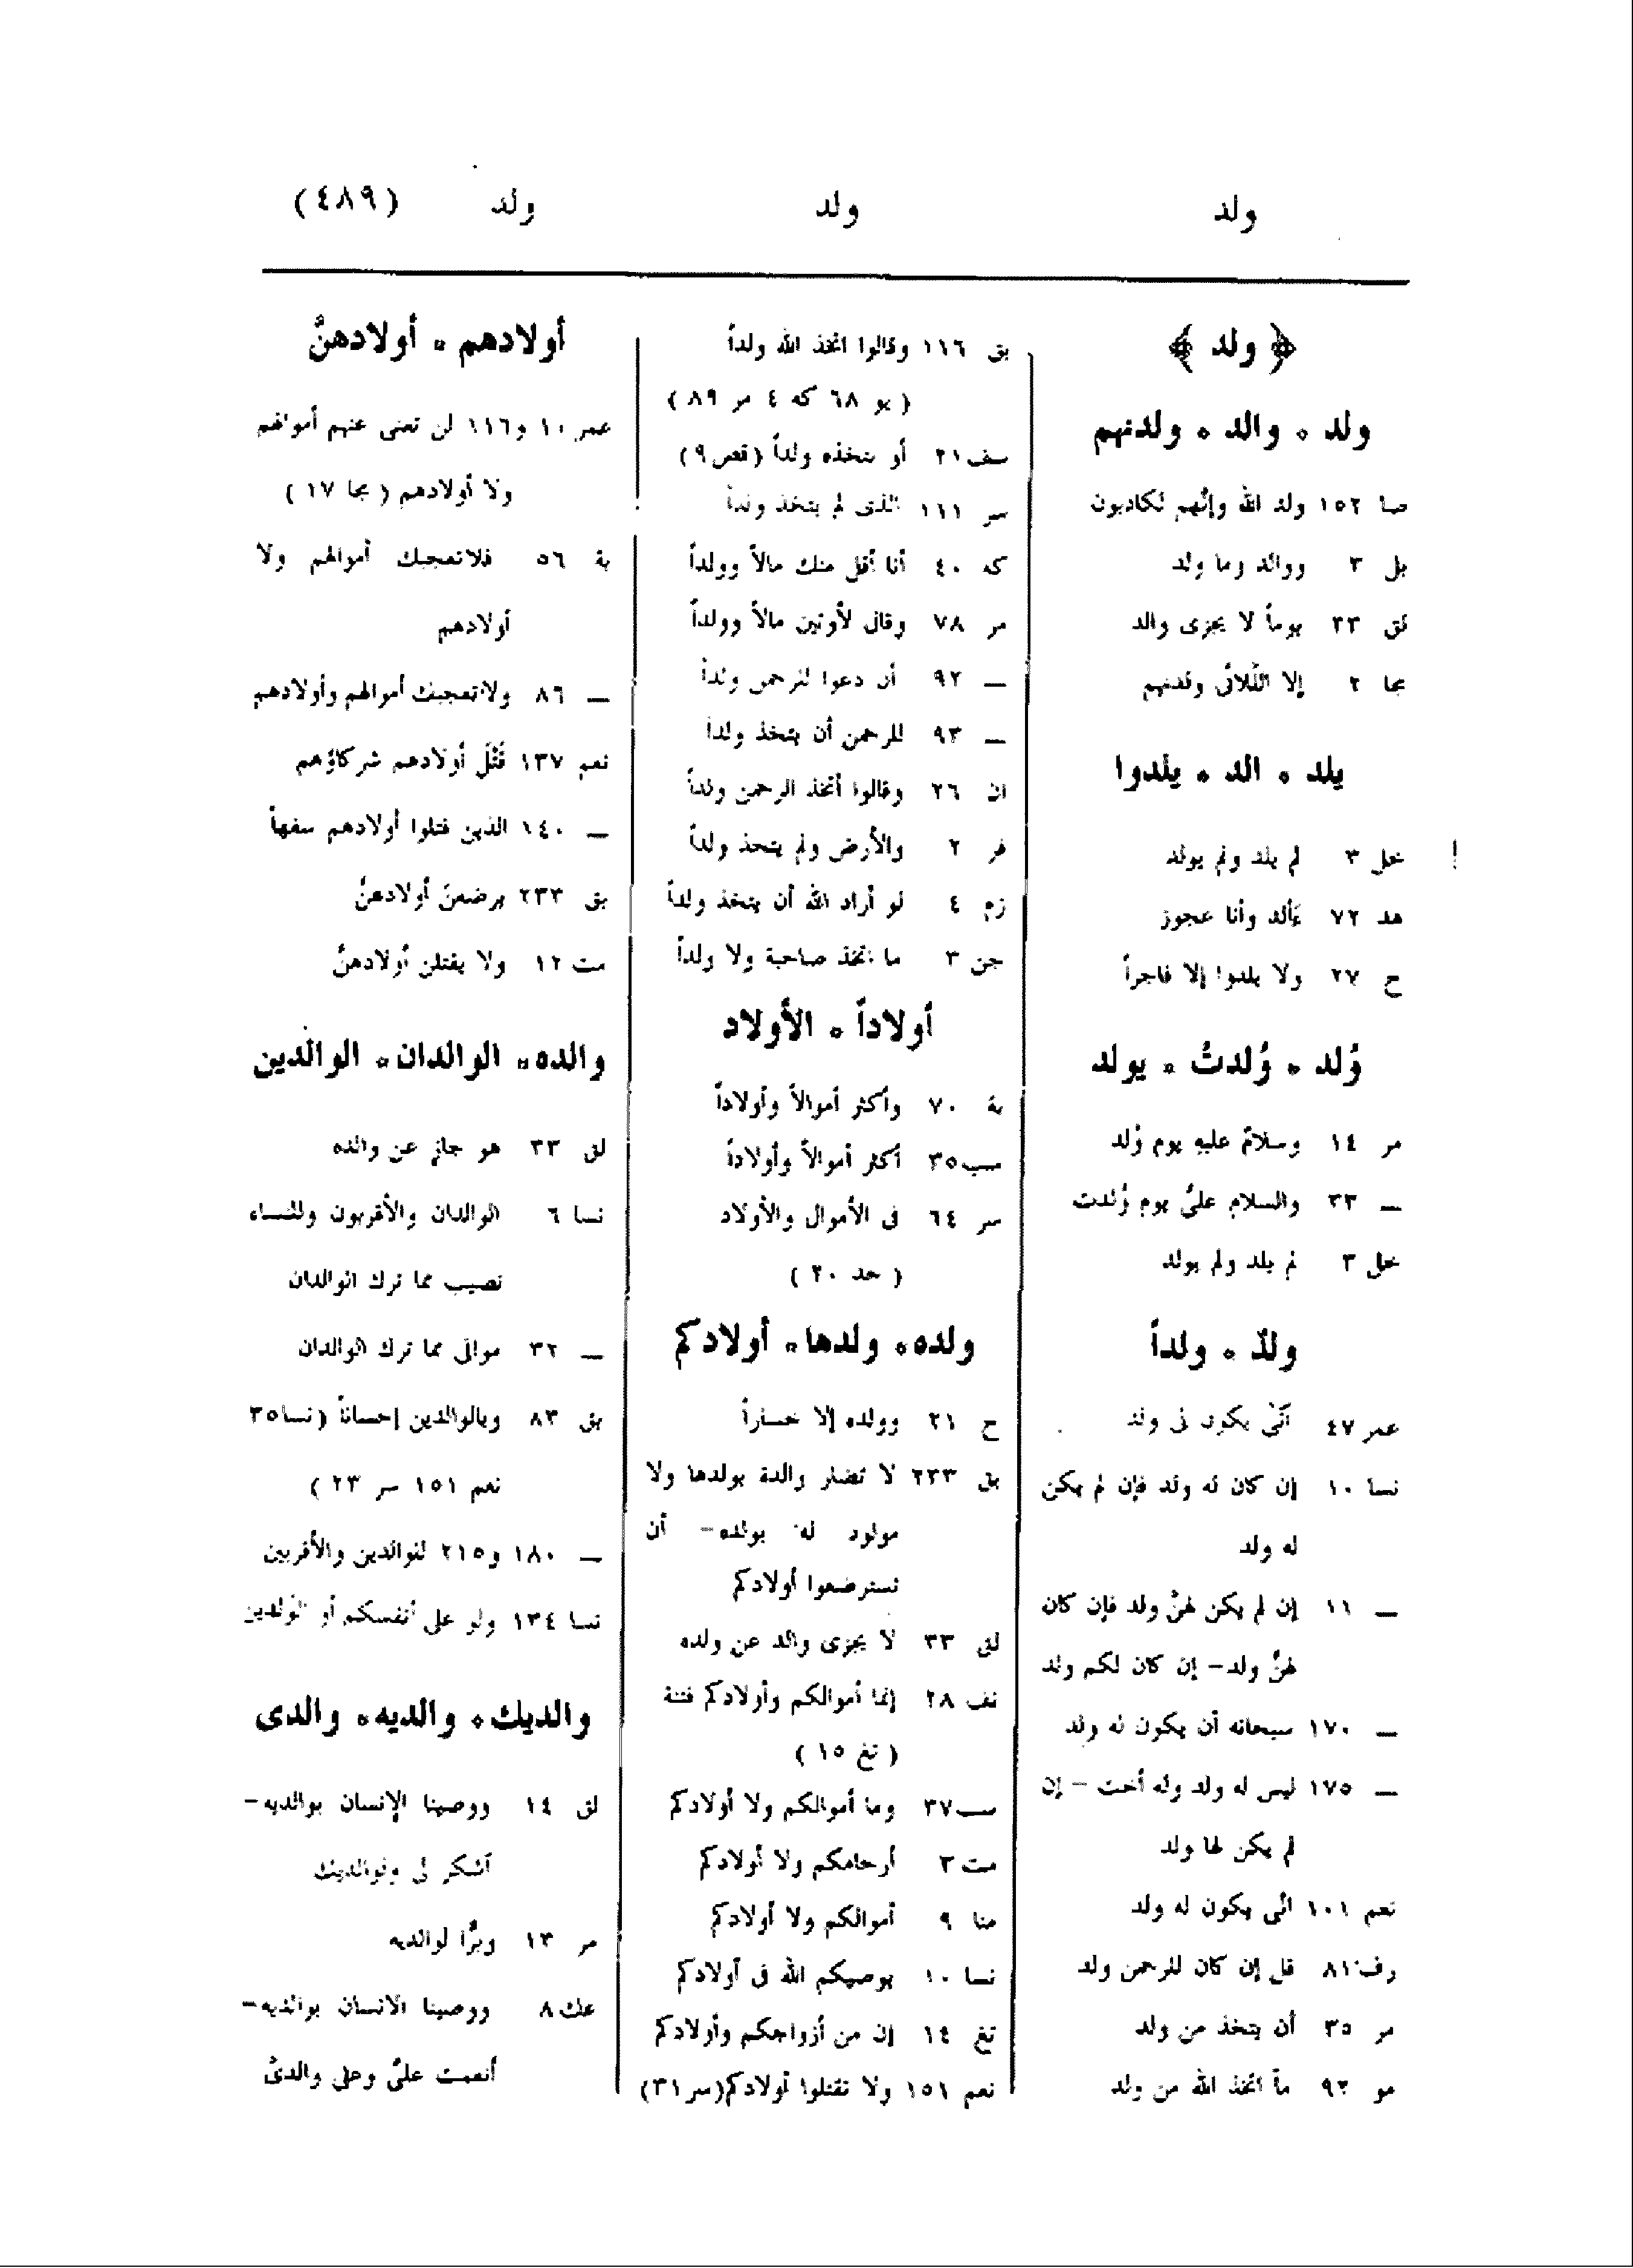 ولد
ولد
ولد
(٤٨٩)
﴿ ولد ﴾
ولد ٠ والد ٠ ولدنهم
صا ١٥٢ ولد الله وإنَّهم لكاذبون
بل ٣ ووالد وما ولد
لق ٣٣ يوماً لا يجزى والد
مجا ٢ إلا اللَّائى ولدنهم
يلد ٠ الد ٠ يلدوا
خل ٣ لم يلد ولم يولد
هد ٧٢ ءَألد وأنا عجوز
ح ٢٧ ولا يلدوا إلا فاجراً
وُلد ٠ وُلدتُ ٠ يولد
مر ١٤ وسلامٌ عليهِ يوم وُلد
ــ ٣٣ والسلام علىَّ يوم وُلدت
خل ٣ لم يلد ولم يولد
ولدٌ ٠ ولداً
عمر ٤٧ أنَّى يكون لى ولد
نسا ١٠ إن كان له ولد فإن لم يكن
له ولد
ــ ١١ إن لم يكن لهنَّ ولد فإن كان
لهنَّ ولد – إن كان لكم ولد
ــ ١٧٠ سبحانه أن يكون له ولد
ــ ١٧٥ ليس له ولد وله أخت – إن
لم يكن لها ولد
نعم ١٠١ انَّى يكون له ولد
رف ٨١ قل إن كان للرحمن ولد
مر ٣٥ أن يتخذ من ولد
مو ٩٢ ما اتخذ الله من ولد
بق ١١٦ وقالوا اتخذ الله ولداً
( يو ٦٨ كه ٤ مر ٨٩ )
سف ٢١ أو نتخذه ولداً ( قص ٩ )
سر ١١١ الذى لم يتخذ ولداً
كه ٤٠ أنا أقل منك مالاً وولداً
مر ٧٨ وقال لأوتين مالاً وولداً
ــ ٩٢ أن دعوا للرحمن ولداً
ــ ٩٣ للرحمن أن يتخذ ولداً
ان ٢٦ وقالوا أتخذ الرحمن ولداً
فر ٢ والأرض ولم يتخذ ولداً
زم ٤ لو أراد الله أن يتخذ ولداً
جن ٣ ما اتخذ صاحبة ولا ولداً
أولاداً ٠ الأولاد
بة ٧٠ وأكثر أموالاً وأولاداً
سب ٣٥ أكثر أموالاً وأولاداً
سر ٦٤ فى الأموال والأولاد
( حد ٢٠ )
ولده ٠ ولدها ٠ أولادكم
ح ٢١ وولده إلا خساراً
بق ٢٣٣ لا تضار والدة بولدها ولا
مولود له بولده – أن
تسترضعوا أولادكم
لق ٣٣ لا يجزى والد عن ولده
نف ٢٨ إنما أموالكم وأولادكم فتنة
( تغ ١٥ )
سب ٣٧ وما أموالكم ولا أولادكم
مت ٣ أرحامكم ولا أولادكم
منا ٩ أموالكم ولا أولادكم
نسا ١٠ يوصيكم الله فى أولادكم
تغ ١٤ إن من أزواجكم وأولادكم
نعم ١٥١ ولا تقتلوا أولادكم (سر ٣١)
أولادهم ٠ أولادهنَّ
عمر ١٠ و١١٦ لن تغنى عنهم أموالهم
ولا أولادهم ( مجا ١٧ )
بة ٥٦ فلا تعجبك أموالهم ولا
أولادهم
ــ ٨٦ ولا تعجبك أموالهم وأولادهم
نعم ١٣٧ قَتْلَ أولادهم شركاؤهم
ــ ١٤٠ الذين قتلوا أولادهم سفهاً
بق ٢٣٣ يرضعنَ أولادهنَّ
مت ١٢ ولا يقتلن أولادهنَّ
والده ٠ الوالدان ٠ الوالدين
لق ٣٣ هو جازٍ عن والده
نسا ٦ الوالدان والأقربون وللنساء
نصيب مما ترك الوالدان
ــ ٣٢ موالى مما ترك الوالدان
بق ٨٣ وبالوالدين إحساناً ( نسا ٣٥
نعم ١٥١ سر ٢٣ )
ــ ١٨٠ و٢١٥ للوالدين والأقربين
نسا ١٣٤ ولو على أنفسكم أو الوالدين
والديك ٠ والديه ٠ والدى
لق ١٤ ووصينا الإنسان بوالديه –
أشكر لى ولوالديك
مر ١٣ وبرًّا لوالديه
عك ٨ ووصينا الانسان بوالديه –
أنعمت علىَّ وعلى والدىَّ